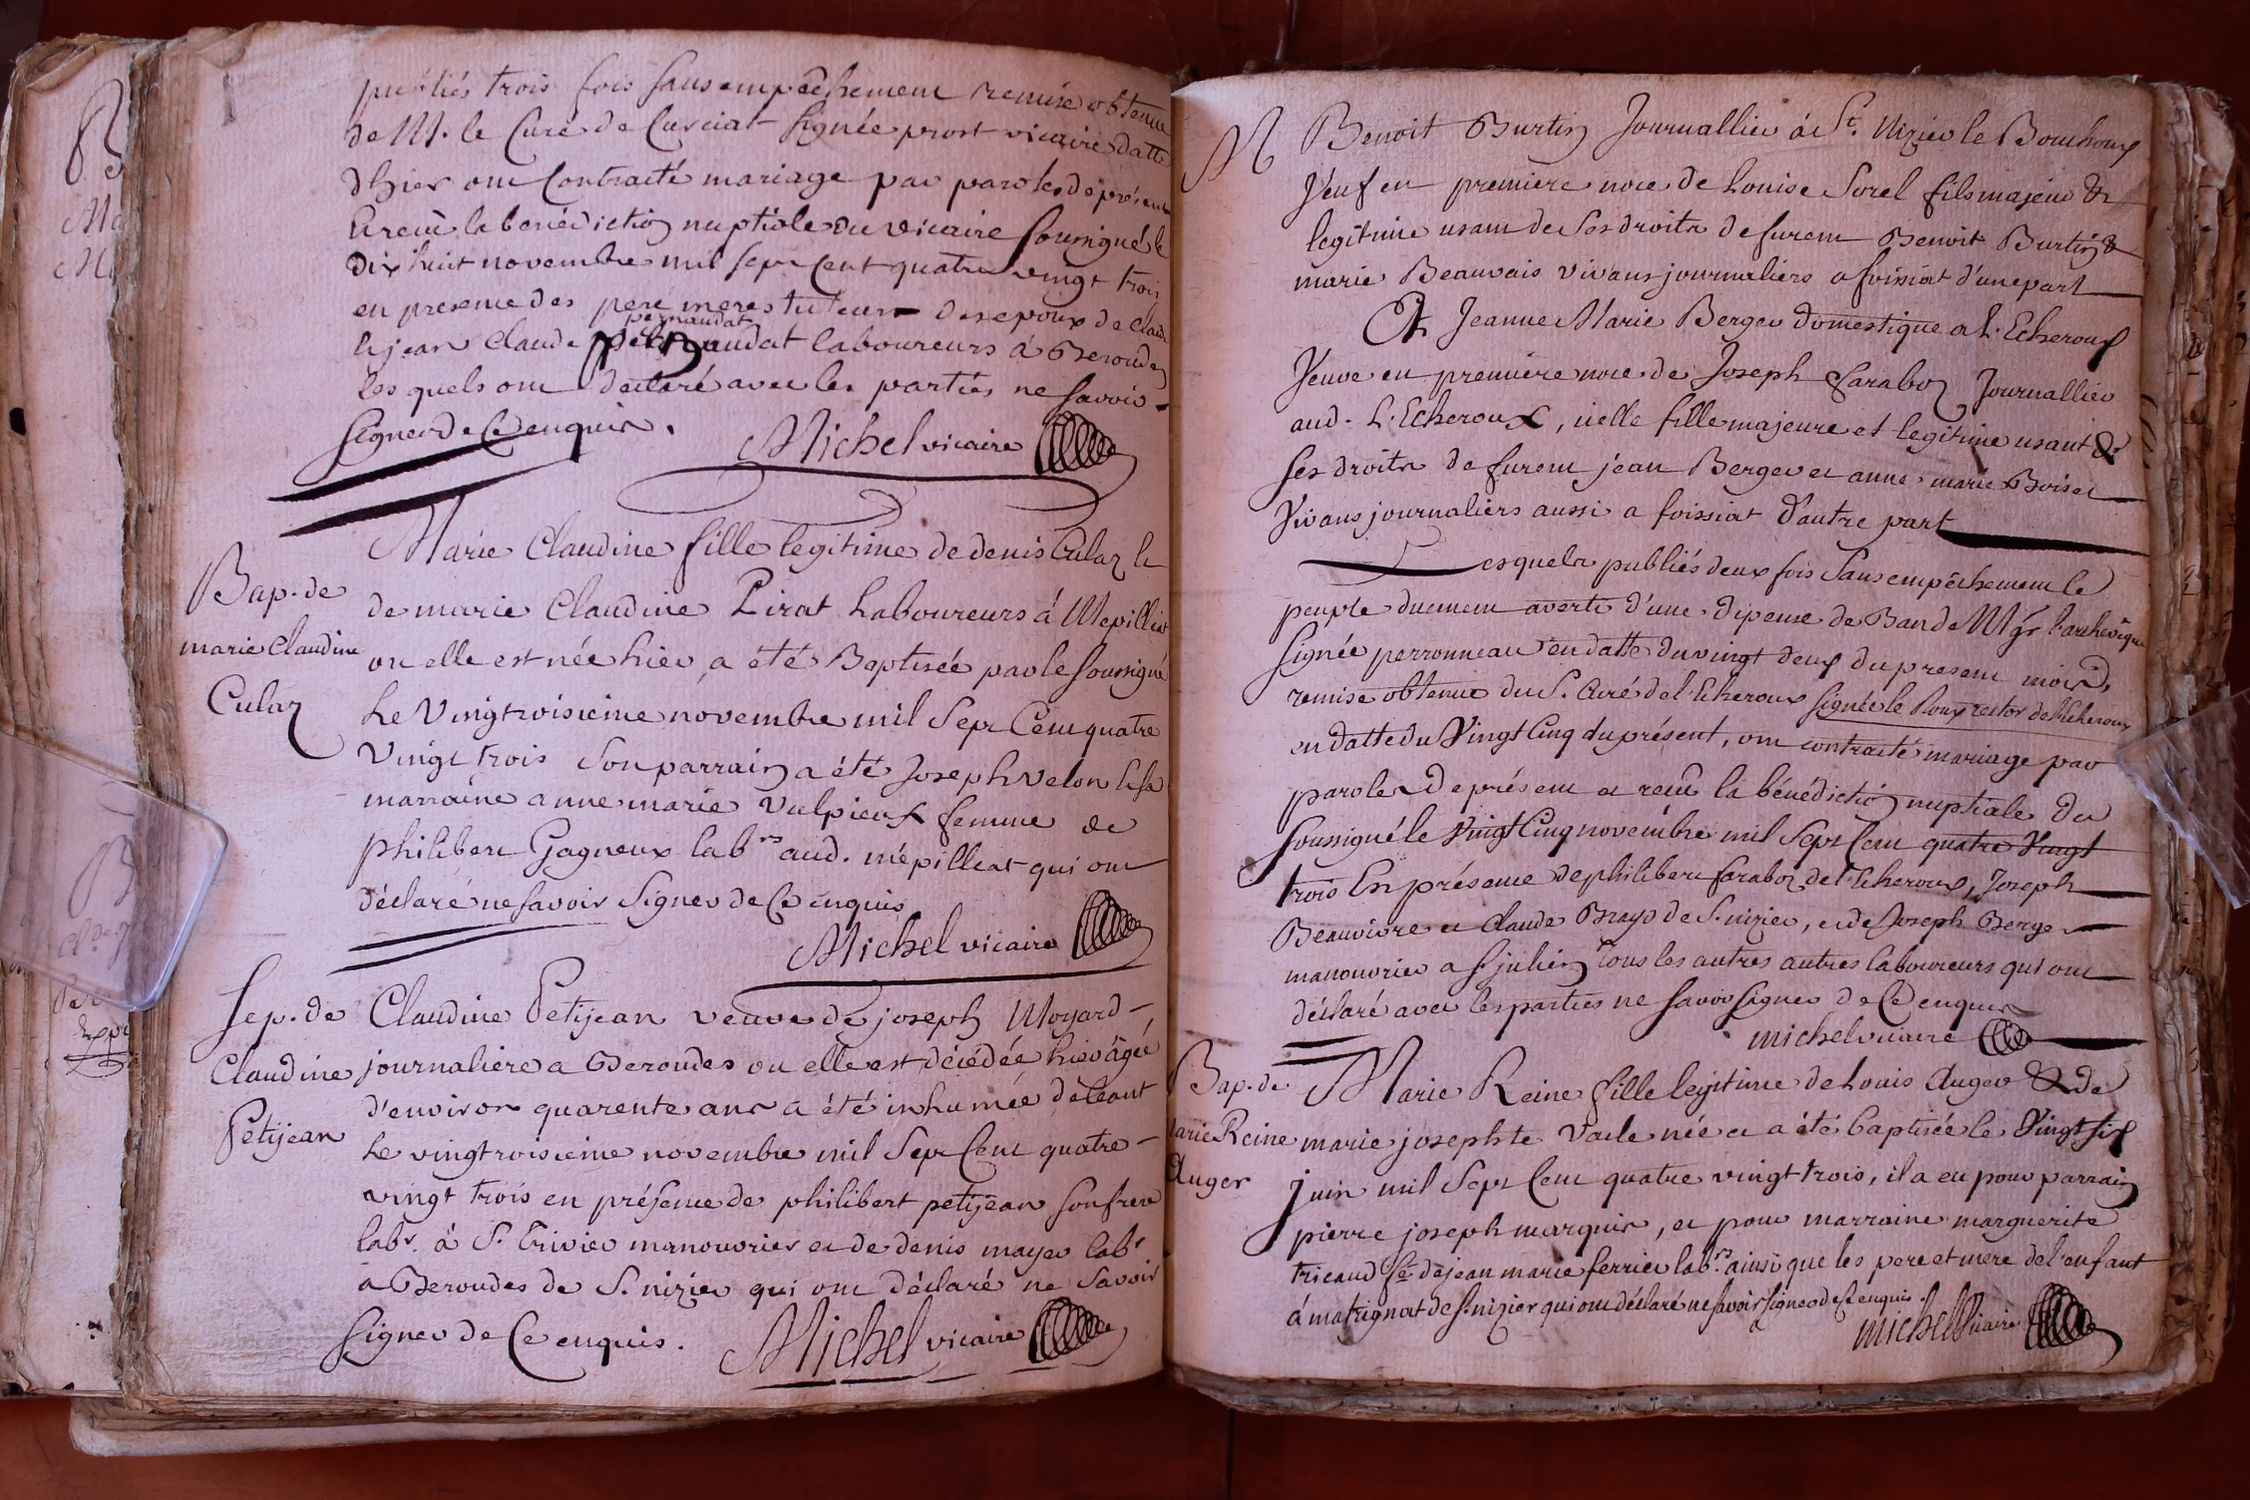 publiés trois fois sans empêchement remise obtenue
de M. le Curé de Curciat signée prost vicaire datte
d'hier ont Contracté mariage par paroles de présent
et reçu la bénédiction nuptiale du vicaire soussigné le
dix huit novembre mil sept cent quatre vingt trois
en presence des pere meres tuteur des epoux de Claude
pernaudat
et jean Claude laboureurs à Beroudes
les quels ont déclaré avec les parties ne savoir
signer de Ce enquis.
Michel vicaire
Bap. de
marie Claudine
Cular
Marie Claudine fille legitime de denis Cular et
de marie Claudine Pirat Laboureurs à Mepilliat
ou elle est née hier, a été Baptisée par le soussigné
Le Vingtroisieme novembre mil Sept Cent quatre
Vingt trois Son parrain a été Joseph Velon et sa
marraine anne marie Vulpieux femme de
philibert Gagneux labrs aud. mépilleat qui ont
déclaré ne savoir signer de Ce enquis
Michel vicaire
Sep. de
Claudine
Petijean
Claudine Petijean veuve de joseph Moyard
journaliere a Beroudes ou elle est décédée hier âgée
d'environ quarente ans a été inhumée déceant
Le vingtroisieme novembre mil Sept Cent quatre
vingt trois en présence de philibert petijean son frere
labr. à St. Trivier manouvrier et de denis mayer labr
a Beroudes de St. nizier qui ont déclaré ne savoir
signer de Ce enquis.
Michel vicaire
M
Benoit Burtin Journallier à St. Nizier le Bouchoux
Veuf en premiere noce de Louise Sorel fils majeur &
legitime usant de Ses droits de furent Benoit Burtin &
marie Beauvais vivans journaliers a foissiat d'une part
Et Jeanne Marie Berger domestique a L'Echeroux
Veuve en premiere noce de Joseph Carabo Journallier
aud. L'Echeroux, icelle fille majeure et legitime usant de
ses droits de furent jean Berger et anne marie Boiset
Vivans journaliers aussi a foissiat d'autre part
Lesquels publiés deux fois Sans empêchement le
peuple duement averti d'une dipense de Ban de Mgr l'archevêque
signée perronneau en datte du vingt deux du present mois,
remise obtenue du S. Curé de l'Echeroux signée le Roux rector de l'Echeroux
en datte du Vingt Cinq du présent, ont contracté mariage par
paroles de présent et reçu la bénédiction nuptiale du
soussigné le Vingt Cinq novembre mil Sept Cent quatre Vingt
trois En présence de philibert Carabo de l'Echeroux, Joseph
Beauvivre et Claude Braye de St. nizier, et de Joseph Berger
manouvrier a St julien tous les autres autres laboureurs qui ont
déclaré avec les parties ne savoir signer de Ce enquis
michel vicaire
Bap. de
Marie Reine
Auger
Marie Reine fille legitime de Louis Auger & de
marie josephte Varle née et a été baptisée le Vingt six
juin mil Sept Cent quatre vingt trois, il a eu pour parrain
pierre joseph marquis, et pour marraine marguerite
tricaud fe de jean marie ferrier labrs. ainsi que les pere et mere de l'enfant
à matrignat de St. nizier qui ont déclaré ne savoir signer de Ce enquis.
michel Vicaire